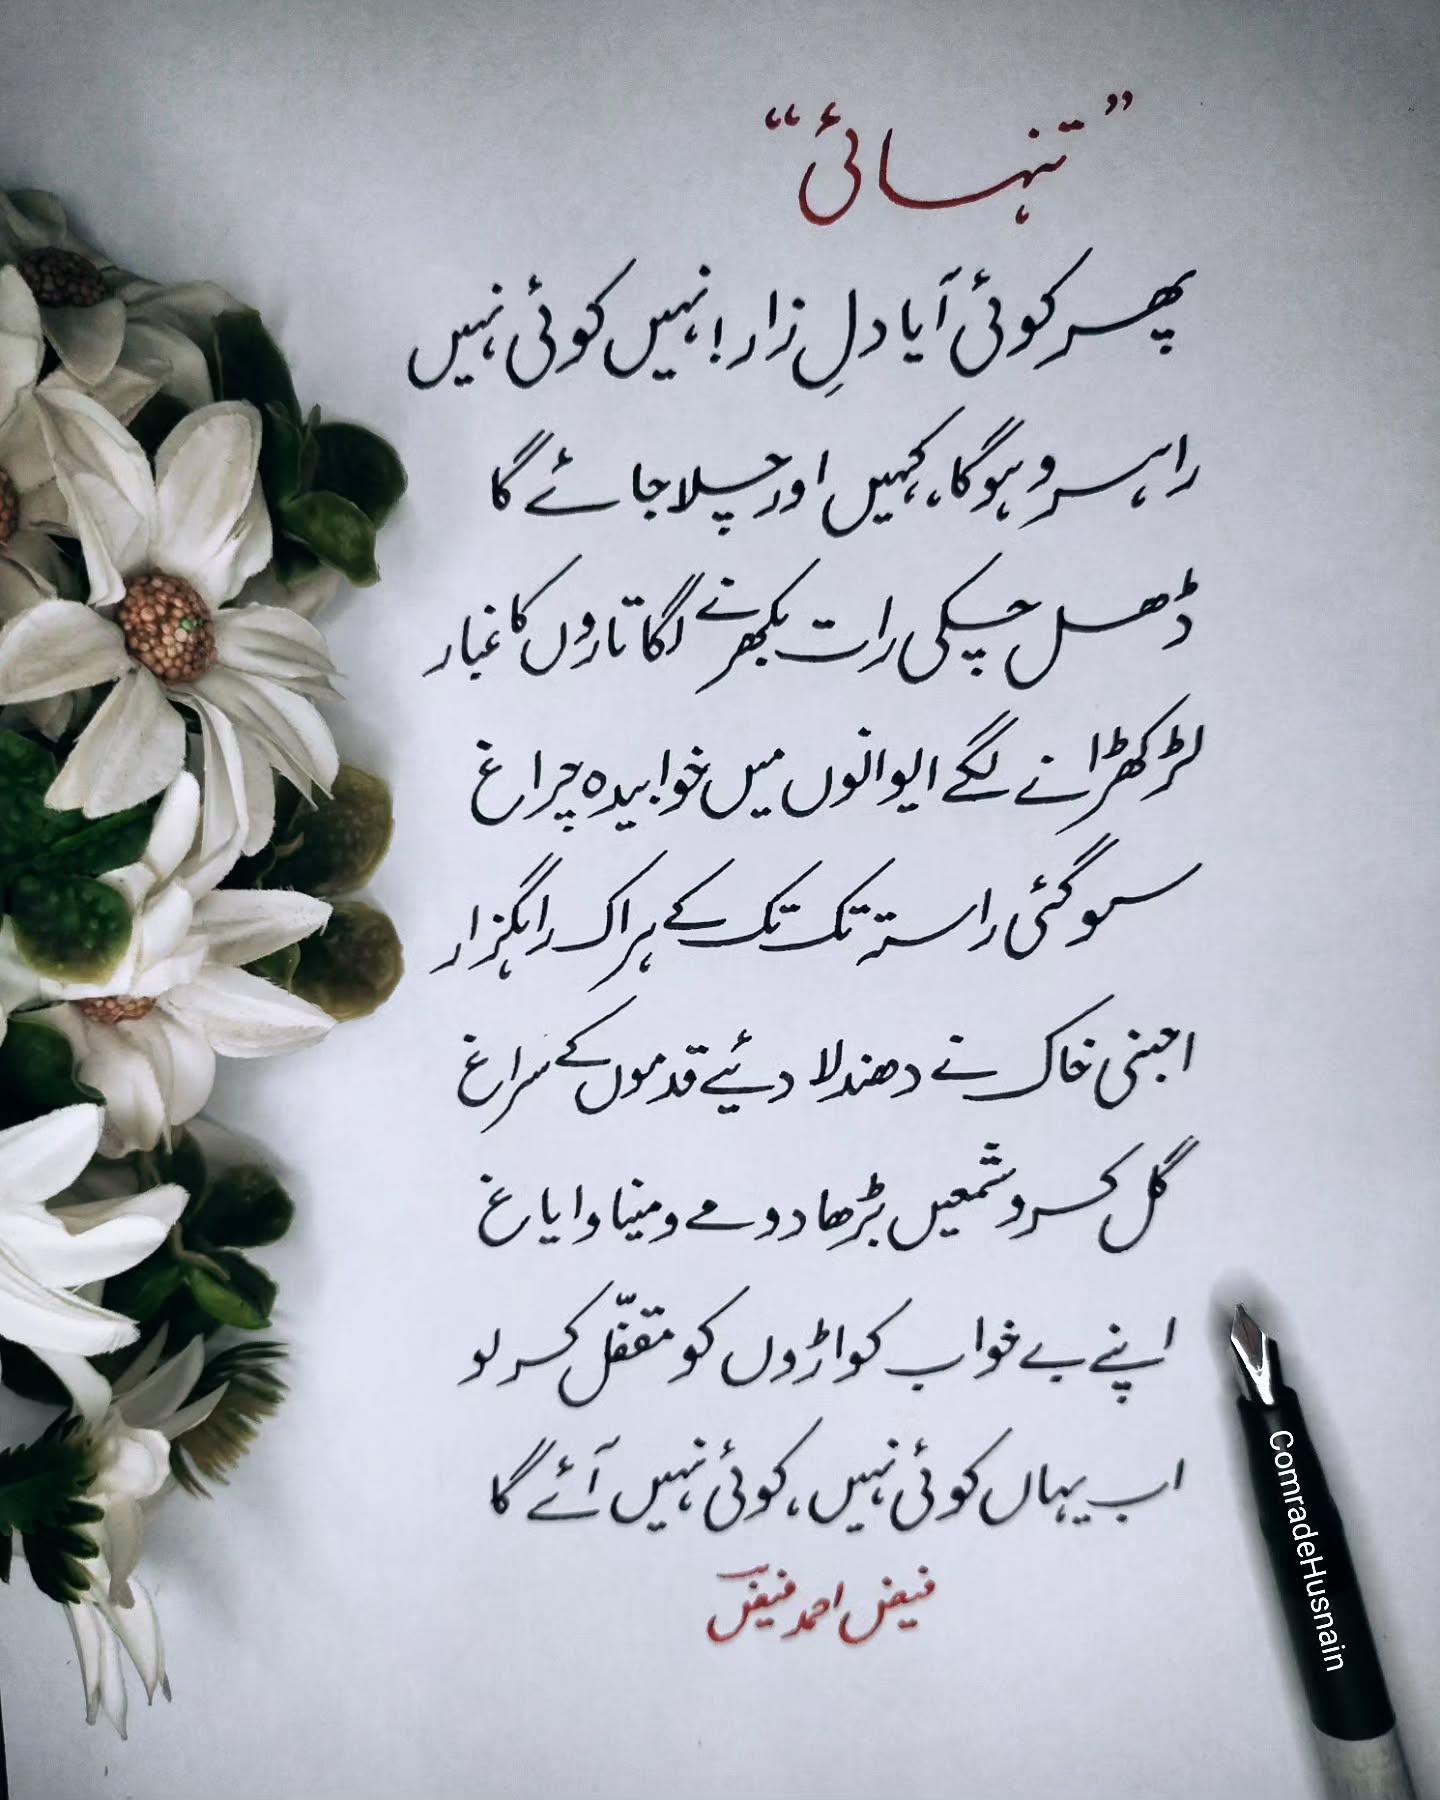 ”تنہائی“
پھر کوئی آیا دلِ زار! نہیں کوئی نہیں
راہرو ہوگا، کہیں اور چلا جائے گا
ڈھل چکی رات بکھرنے لگا تاروں کا غبار
لڑکھڑانے لگے ایوانوں میں خوابیدہ چراغ
سو گئی راستہ تک تک کے ہر اک راہگزار
اجنبی خاک نے دھندلا دئیے قدموں کے سراغ
گل کرو شمعیں بڑھا دو مے و مینا و ایاغ
اپنے بے خواب کواڑوں کو مقفّل کر لو
اب یہاں کوئی نہیں، کوئی نہیں آئے گا
فیض احمد فیض
ComradeHusnain